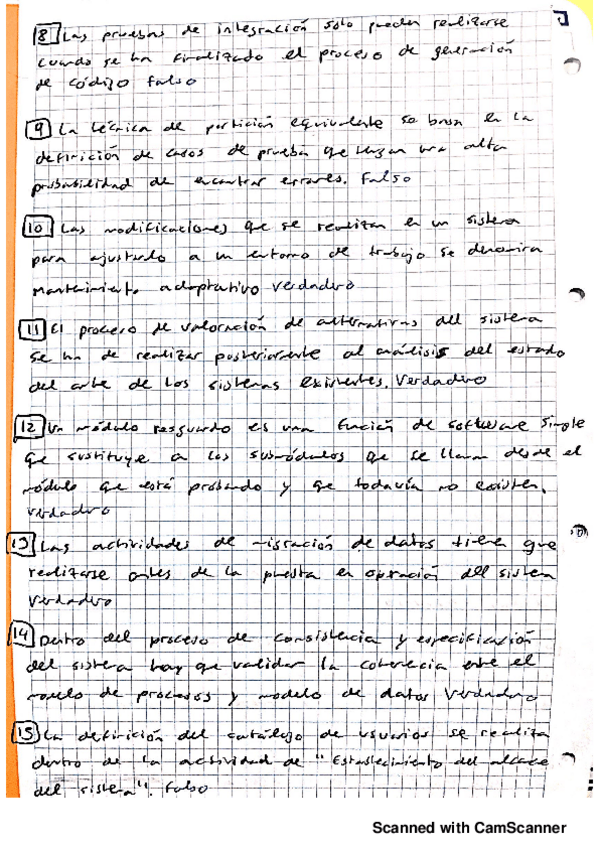 8 Las pruebas de integración solo pueden realizarse
cuando se ha finalizado el proceso de generación
de código falso
9 La técnica de partición equivalente se basa en la
definición de casos de prueba que tengan una alta
probabilidad de encontrar errores. Falso
10 Las modificaciones que se realizan en un sistema
para ajustarlo a un entorno de trabajo se denomina
mantenimiento adaptativo verdadero
11 El proceso de valoración de alternativas del sistema
se ha de realizar posteriormente al análisis del estado
del arte de los sistemas existentes. Verdadero
12 Un módulo resguardo es una función de software simple
que sustituye a los submódulos que se llaman desde el
módulo que está probando y que todavía no existen.
verdadero
13 Las actividades de migración de datos tienen que
realizarse antes de la puesta en operación del sistema
Verdadero
14 Dentro del proceso de consistencia y especificación
del sistema hay que validar la coherencia entre el
modelo de procesos y modelo de datos Verdadero
15 La definición del catálogo de usuarios se realiza
dentro de la actividad de "Establecimiento del alcance
del sistema". Falso
Scanned with CamScanner